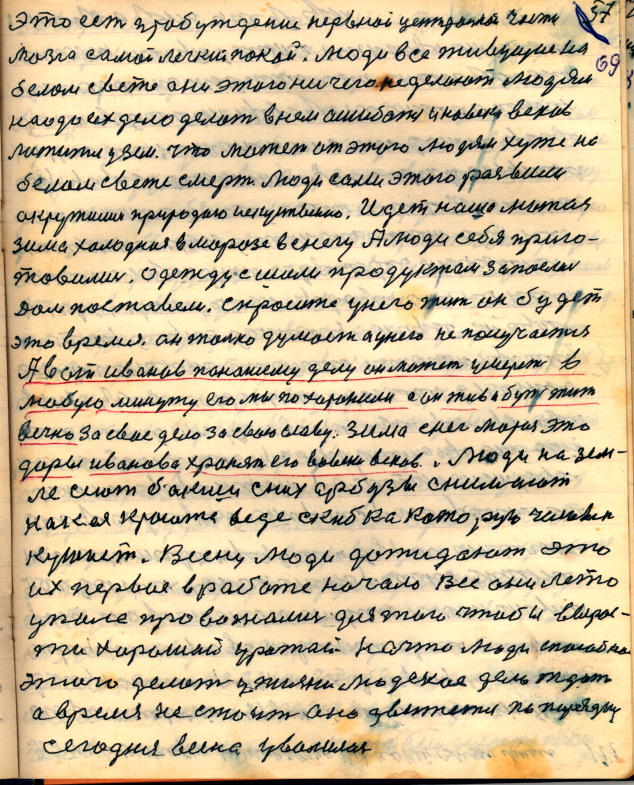 57
69
Это ест пробуждение нервной центральной части
мозга самой легкий покой. Люди все живущие на
белом свете они этого ничего неделают людям
надо их дело делат в нем ошибатя и навеки веков
Что может от этого людям хуже на
белом свете смерт. Люди сами этого развили
окружили природаю искуственно. Идет наша лютая
зима холодная в морозе в снегу А люди себя приго-
товили. Одежду сшили продуктам запасли
дом поставели. спросите унего жит он будет
это время. он толко думает а унего не получается
А вот иванов понашему делу он может умерет в
любую минуту его мы похоронили а он жив и будит жит
вечно За свое дело За свою славу. Зима снег мороз это
дары иванова хранят его вовеки веков. Люди на зем-
ле сеют бахчи сних арбузы снимают
какая красота веде скибка которую человек
кушает. Весну люди дожидают это
их первое вработе начало все они лето
упале провожали для того чтобы вырос-
ти хороший урожай начто люди способны
этого делат ужизни людское дело ждат
а время не стоит оно движется по порядку
сегодня весна увалилас